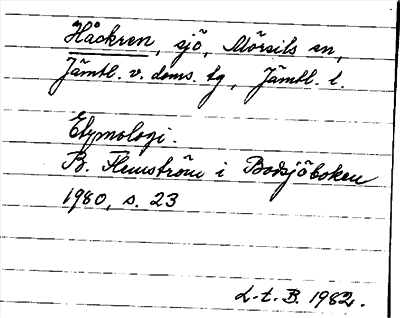 Håckren, sjö, Mörsils sn,
Jämtl. v. doms. tg, Jämtl. l.
Etymologi.
B. Flemström i Bodsjöboken
1980, s. 23
L-t. B. 1982.